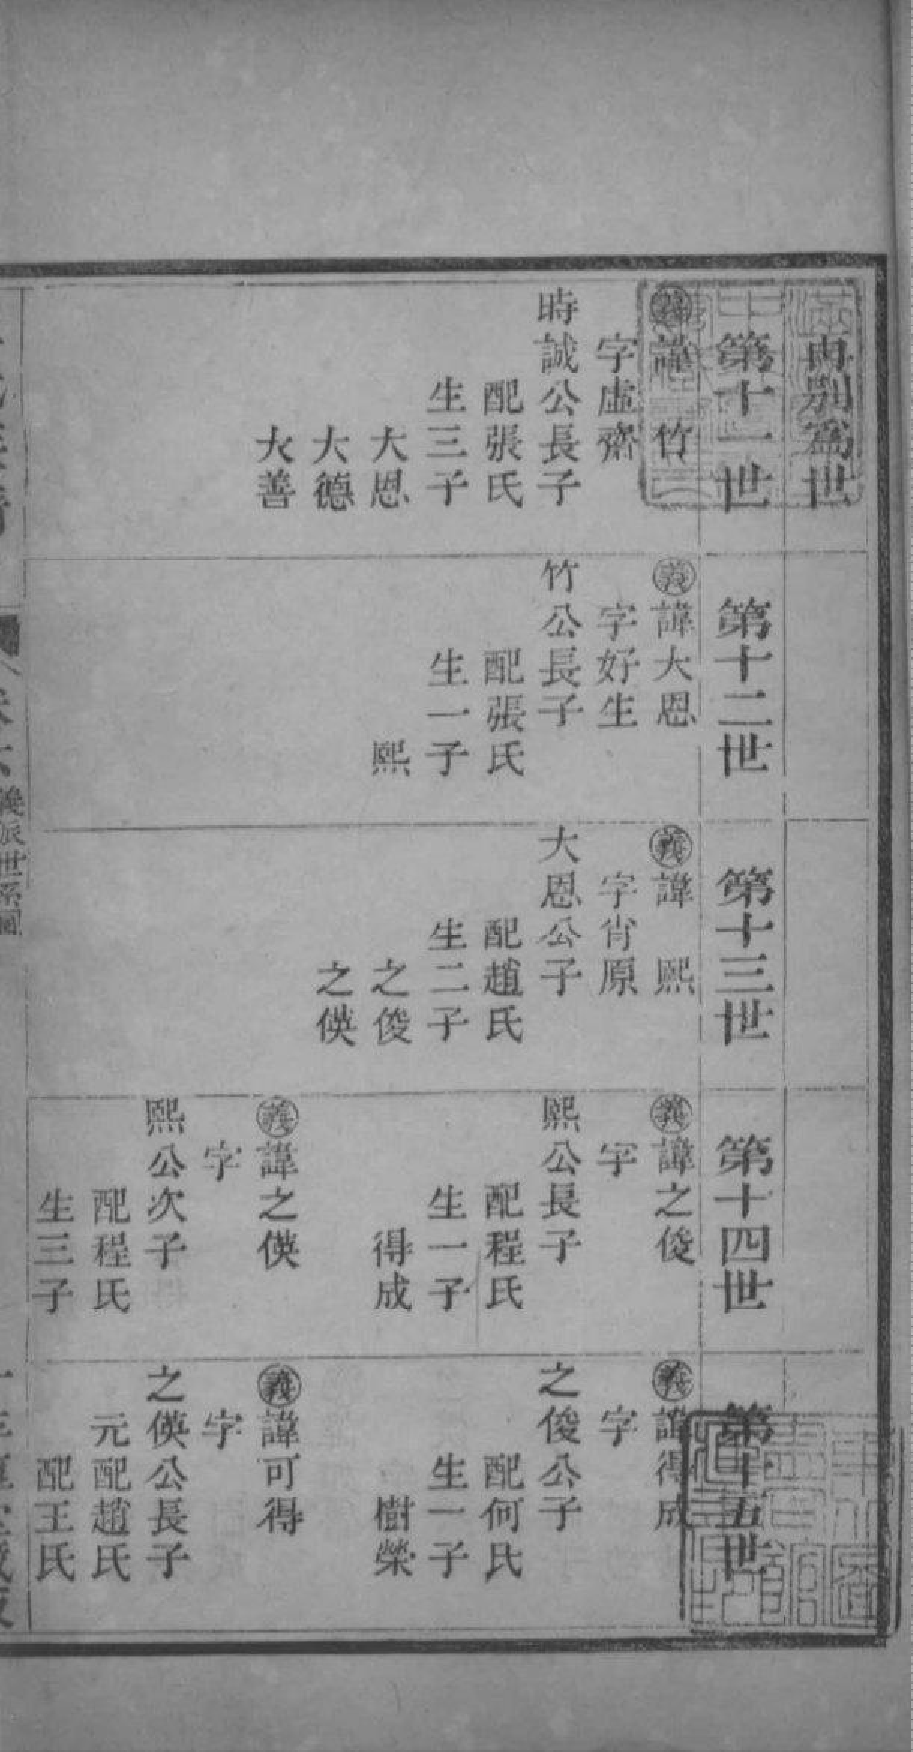 再別為世
第十一世
義諱竹
字虛齋
時誠公長子
配張氏
生三子
大恩
大德
大善
第十二世
義諱大恩
字好生
竹公長子
配張氏
生一子
熙
第十三世
義諱熙
字宵原
大恩公子
配趙氏
生二子
之俊
之偀
第十四世
義諱之俊
字
熙公長子
配程氏
生一子
得成
義諱之偀
字
熙公次子
配程氏
生三子
第十五世
義諱得成
字
之俊公子
配何氏
生一子
樹榮
義諱可得
字
之偀公長子
元配趙氏
配王氏
義派世系圖